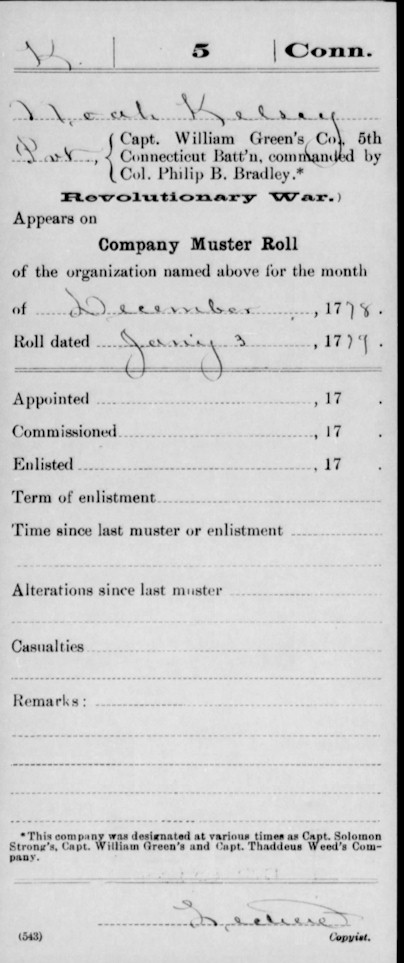 K. | 5 | Conn.
Noah Kelsey
Pvt., { Capt. William Green's Co., 5th
Connecticut Batt'n, commanded by
Col. Philip B. Bradley.*
Revolutionary War.)
Appears on
Company Muster Roll
of the organization named above for the month
of December, 1778.
Roll dated Jan'y 3, 1779.
Appointed , 17 .
Commissioned , 17 .
Enlisted , 17 .
Term of enlistment
Time since last muster or enlistment
Alterations since last muster
Casualties
Remarks:
*This company was designated at various times as Capt. Solomon
Strong's, Capt. William Green's and Capt. Thaddeus Weed's Com-
pany.
(543) Copyist.